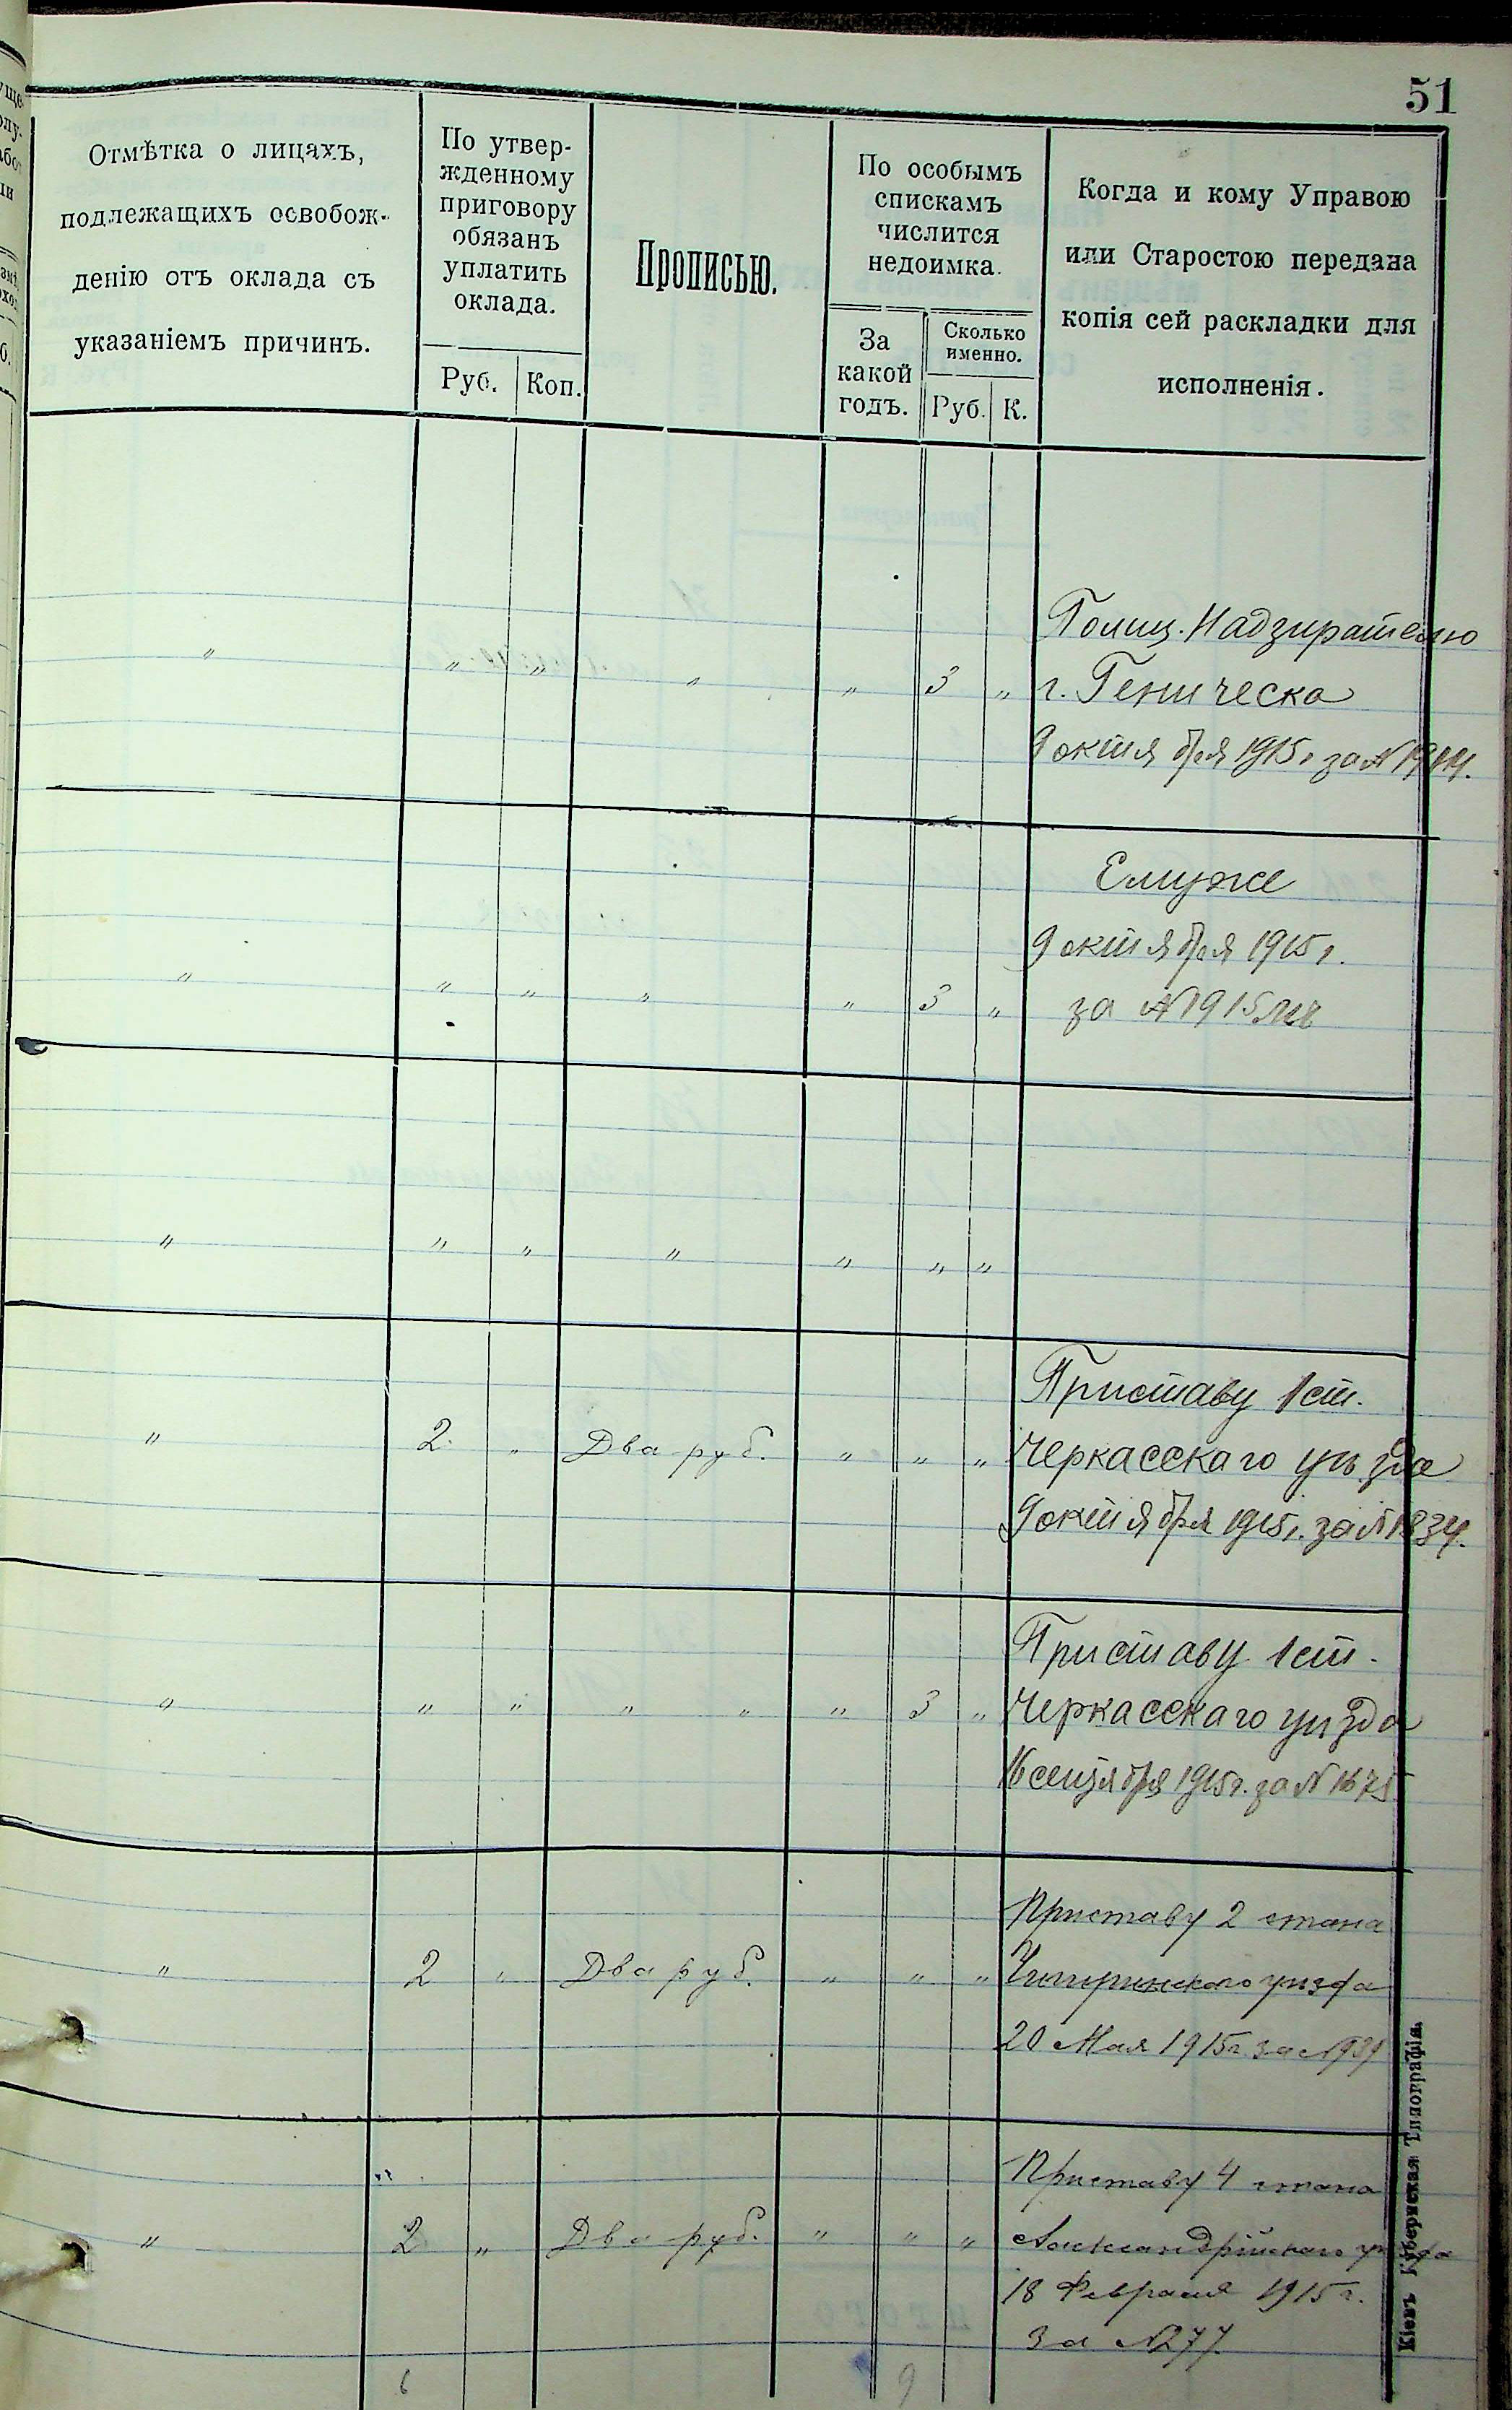 51
Отмѣтка о лицахъ,
подлежащихъ освобож-
денію отъ оклада съ
указаніемъ причинъ.
По утвер-
жденному
приговору
обязанъ
уплатить
оклада.
Руб. Коп.
Прописью.
По особымъ
спискамъ
числится
недоимка.
За
какой
годъ.
Сколько
именно.
Руб. К.
Когда и кому Управою
или Старостою передана
копія сей раскладки для
исполненія.
Полиц. Надзирателю
" " " " " 3 " г. Геническа
9 октября 1915 г. за № 1914.
Емуже
9 октября 1915 г.
" " " " " 3 " за № 1915
" " " " " " "
Приставу 1 ст.
" 2 " Два руб. " " " Черкасскаго уѣзда
9 октября 1915 г. за № 1834.
Приставу 1 ст.
" " " " " " 3 " Черкасскаго уѣзда
16 сентября 1915 г. за № 1675
Приставу 2 стана
" 2 " Два руб. " " " Чигиринскаго уѣзда
20 Мая 1915 г. за №
Приставу 4 стана
" 2 " Два руб. " " " Александрійскаго уѣзда
18 Февраля 1915 г.
за № 277.
6 9
Кіевъ Губернская Типографія.